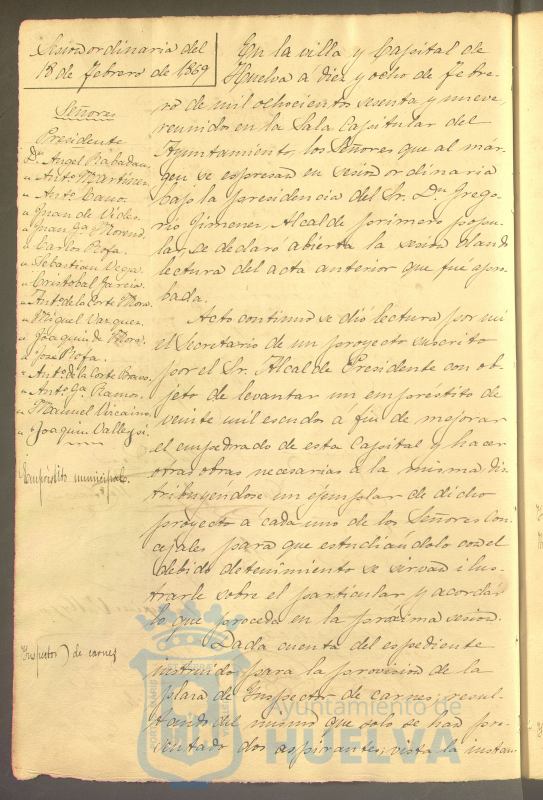 Sesion ordinaria del
18 de Febrero de 1869
Señores
Presidente
Dn. Angel Rabadan
" Anto. Martinez
" Anto. Cano.
" Juan de Vides.
" Juan Ga. Moreno.
" Carlos Rofa.
" Sebastian Vega.
" Cristobal Garcia.
" Anto. de la Corte Mora.
" Miguel Vazquez.
" Joaquin de Mora.
" Jose Rofa.
" Anto. de la Corte Bravo.
" Anto. Ga. Ramos.
" Manuel Vizcaino
" Joaquin Vallegui.
Empréstito municipal.
Inspector de carnes
En la villa y Capital de
Huelva a diez y ocho de Febre-
ro de mil ochocientos sesenta y nueve,
reunidos en la Sala Capitular del
Ayuntamiento, los Señores que al mar-
gen se espresan en sesion ordinaria
bajo la presidencia del Sr. Dn. Grego-
rio Gimenez, Alcalde primero popu-
lar, se declaró abierta la sesion dando
lectura del acta anterior que fué apro-
bada.
Acto continuo se dió lectura por mi
el Secretario de un proyecto suscrito
por el Sr. Alcalde Presidente con ob-
jeto de levantar un empréstito de
veinte mil escudos a fin de mejorar
el empedrado de esta Capital y hacer
otras obras necesarias a la misma dis-
tribuyéndose un ejemplar de dicho
proyecto a cada uno de los Señores Con-
cejales para que estudiándolo con el
debido detenimiento se sirvan ilus-
trarle sobre el particular y acordar
lo que proceda en la proxima sesion.
Dada cuenta del espediente
instruido para la provision de la
plaza de Inspector de carnes, resul-
tando del mismo que solo se han pre-
sentado dos aspirantes; vista la instan-
Ayuntamiento de
HUELVA